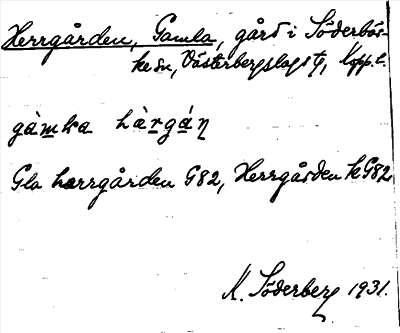 Herrgården, Gamla, gård i Söderbär-
ke sn, Västerbergslags tg, Kopp.l.
gàmka hàrgáŋ
Gla herrgården G82, Herrgården k G82
K. Söderberg 1931.